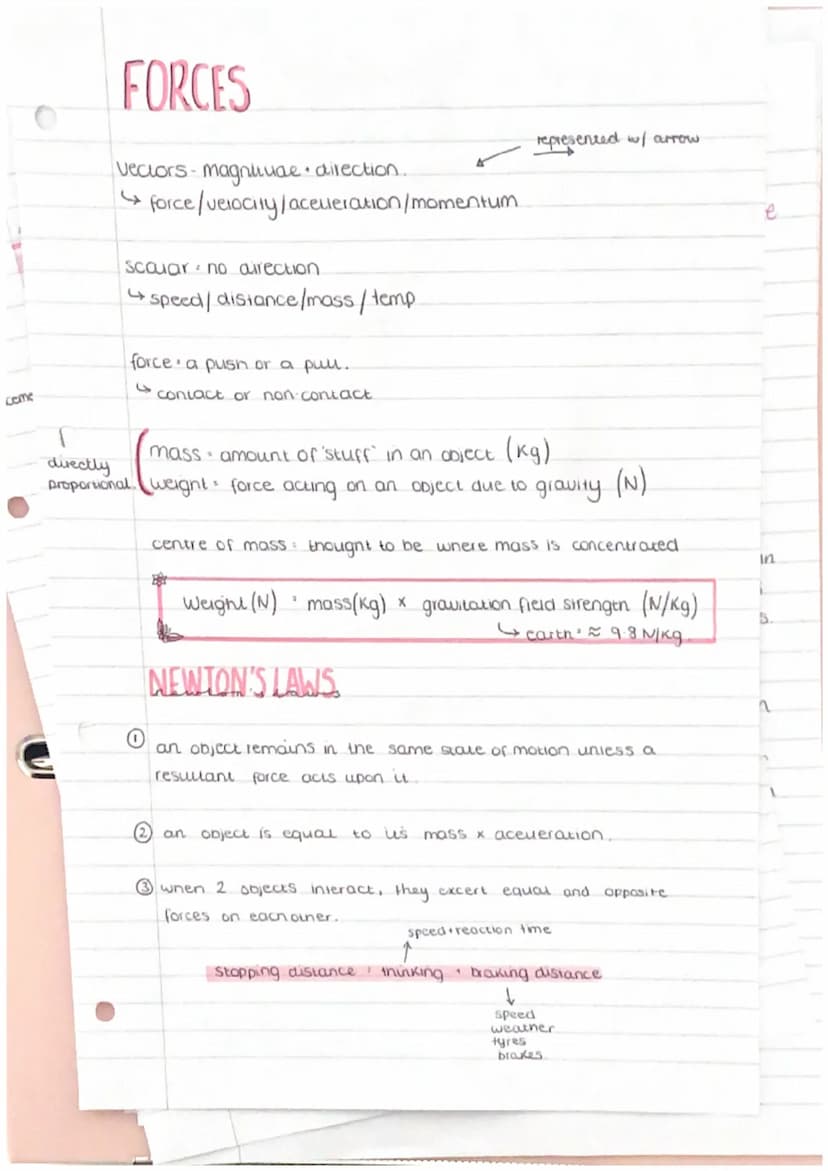 FORCES
represented w/ arrow
vectors - magnitude + direction.
↳ force/velocity/acceleration/momentum
scalar = no direction
↳ speed/distance/mass/temp
force = a push or a pull.
↳ contact or non-contact
directly
proportional.
mass = amount of 'stuff' in an object (kg)
weight = force acting on an object due to gravity (N)
centre of mass = thought to be where mass is concentrated
weight (N) = mass(kg) × gravitation field strength (N/kg)
↳ earth = ≈ 9.8 N/kg.
NEWTON'S LAWS
① an object remains in the same state of motion unless a
resultant force acts upon it.
② an object is equal to its mass × aceleration.
③ when 2 objects interact, they excert equal and opposite
forces on eachother.
speed + reaction time
stopping distance = thinking + braking distance
speed
weather
tyres
brakes